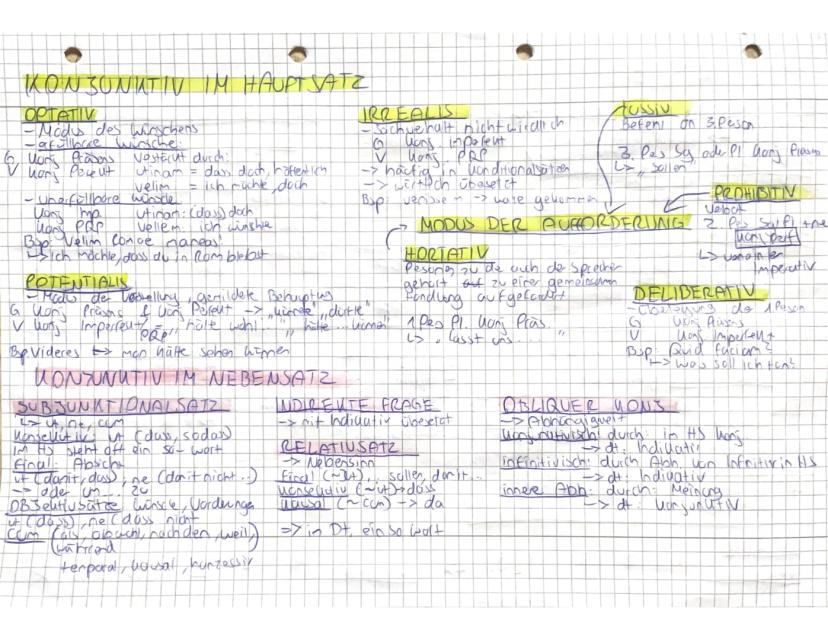 KONJUNKTIV IM HAUPTSATZ
OPTATIV
- Modus des Wünschens
- erfüllbare Wünsche:
G Konj Präsens verstärkt durch:
V Konj Perfekt utinam = dass doch, hoffentlich
velim = ich möchte, doch
- unerfüllbare Wünsche
Konj Imp. utinam: (dass) doch
Konj PQP vellem: ich wünschte
Bsp: Velim Romae maneas!
↳ ich möchte, dass du in Rom bleibst
POTENTIALIS
- Modus der Vorstellung, gemilderte Behauptung
G Konj Präsens & Konj Perfekt -> "könnte", "dürfte"
V Konj Imperfekt / PQP "hätte wohl", "hätte... können"
Bsp Videres -> man hätte sehen können
IRREALIS
- Sachverhalt nicht wirklich
G Konj. Imperfekt
V Konj. PQP
-> häufig in Konditionalsätzen
-> wirklich übersetzt
Bsp: venissem -> wäre gekommen
JUSSIV
Befehl an 3. Person
3. Pers Sg oder Pl Konj Präsens
↳ "sollen"
PROHIBITIV
Verbot
2. Pers Sg/Pl + ne
Konj Perf
↳ verneinter
Imperativ
MODUS DER AUFFORDERUNG
HORTATIV
Personen zu der auch der Sprecher
gehört auf zu einer gemeinsamen
Handlung aufgefordert
1 Pers Pl. Konj Präs.
↳ "lasst uns....."
DELIBERATIV
- Überlegung der 1 Person
G Konj Präsens
V Konj Imperfekt
Bsp: Quid faciam?
↳ Was soll ich tun?
KONJUNKTIV IM NEBENSATZ
SUBJUNKTIONALSATZ
↳ ut, ne, cum
Konsekutiv: ut (dass, sodass)
im HS steht oft ein so-Wort
Final: Absicht
ut (damit, dass), ne (damit nicht..)
-> oder um... zu
Objektivsätze Wünsche, Forderungen
ut (dass), ne (dass nicht
Cum (als, obwohl, nachdem, weil,)
(während
temporal, kausal, konzessiv
INDIREKTE FRAGE
-> mit Indikativ übersetzt
RELATIVSATZ
-> Nebensinn
Final (~ut)... sollen, damit..
Konsekutiv (~ut) -> dass
Kausal (~cum) -> da
=> in Dt. ein so Wort
OBLIQUER KONJ
-> Abhängigkeit
Konjunktivisch: durch: im HS Konj
-> dt: Indikativ
infinitivisch: durch Abh. von Infinitiv in HS
-> dt: Indikativ
innere Abh: durch: Meinung
-> dt: Konjunktiv